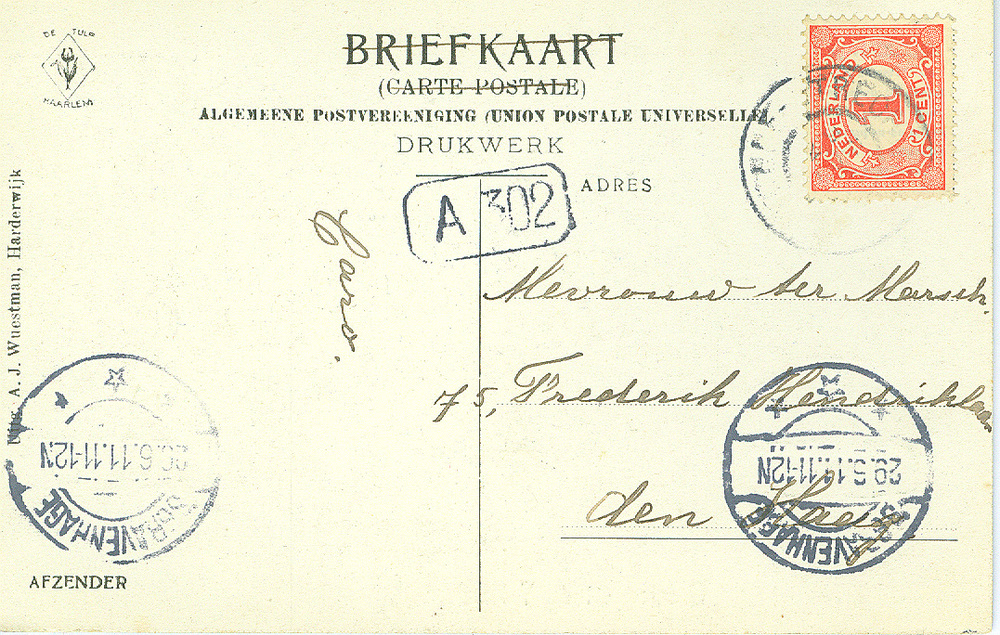 DE TULP
HAARLEM
BRIEFKAART
(CARTE POSTALE)
ALGEMEENE POSTVEREENIGING (UNION POSTALE UNIVERSELLE)
DRUKWERK
ADRES
NEDERLAND
1
1 CENT
A 302
Caro.
Mevrouw ter Marsch.
75, Frederik Hendriklaan
den Haag
Uitg. A. J. Wuestman, Harderwijk
29.6.11.11-12N
'SGRAVENHAGE
29.6.11.11-12N
'SGRAVENHAGE
AFZENDER